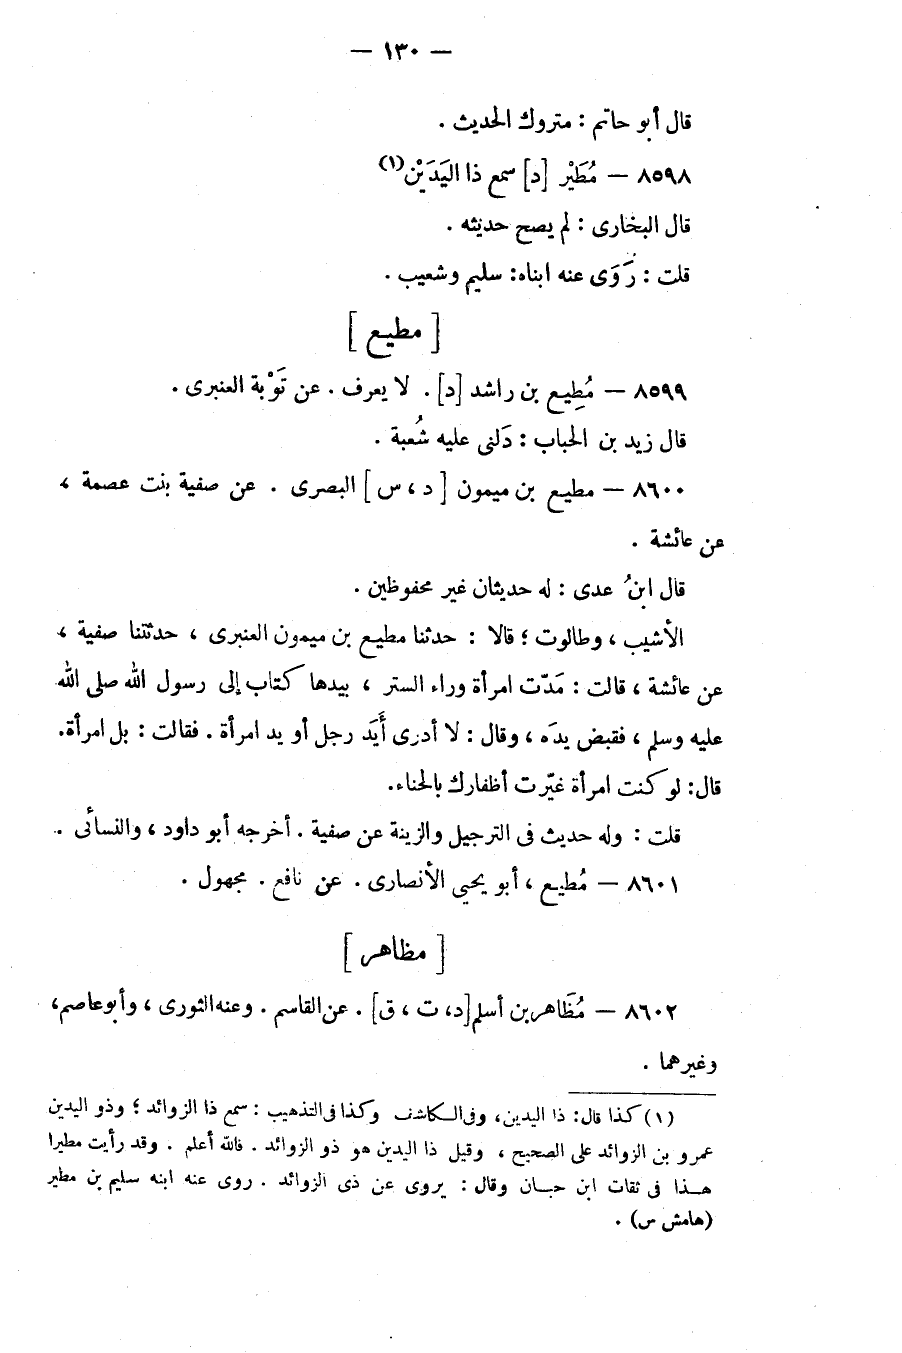 — ١٣٠ —
قال أبو حاتم : متروك الحديث .
٨٥٩٨ — مُطَيْر [د] سمع ذا اليَدَيْن(١)
قال البخارى : لم يصح حديثه .
قلت : رَوَى عنه ابناه: سليم وشعيب .
[ مطيع ]
٨٥٩٩ — مُطِيع بن راشد [د] . لا يعرف . عن تَوْبة العنبرى .
قال زيد بن الحباب : دَلنى عليه شُعبة .
٨٦٠٠ — مطيع بن ميمون [ د ، س ] البصرى . عن صفية بنت عصمة ،
عن عائشة .
قال ابنُ عدى : له حديثان غير محفوظين .
الأشيب ، وطالوت ؛ قالا : حدثنا مطيع بن ميمون العنبرى ، حدثتنا صفية ،
عن عائشة ، قالت : مَدّت امرأة وراء الستر ، بيدها كتاب إلى رسول الله صلى الله
عليه وسلم ، فقبض يدَه ، وقال : لا أدرى أَيَد رجل أو يد امرأة . فقالت : بل امرأة.
قال: لو كنت امرأة غيّرت أظفارك بالحناء.
قلت : وله حديث فى الترجيل والزينة عن صفية . أخرجه أبو داود ، والنسائى .
٨٦٠١ — مُطيع ، أبو يحيى الأنصارى . عن نافع . مجهول .
[ مظاهر ]
٨٦٠٢ — مُظَاهر بن أسلم [د، ت ، ق] . عن القاسم . وعنه الثورى ، وأبو عاصم،
وغيرهما .
(١) كذا قال: ذا اليدين، وفى الكاشف وكذا فى التذهيب : سمع ذا الزوائد ؛ وذو اليدين
عمرو بن الزوائد على الصحيح ، وقيل ذا اليدين هو ذو الزوائد . فالله أعلم . وقد رأيت مطيرا
هذا فى ثقات ابن حبان وقال : يروى عن ذى الزوائد . روى عنه ابنه سليم بن مطير
(هامش س) .